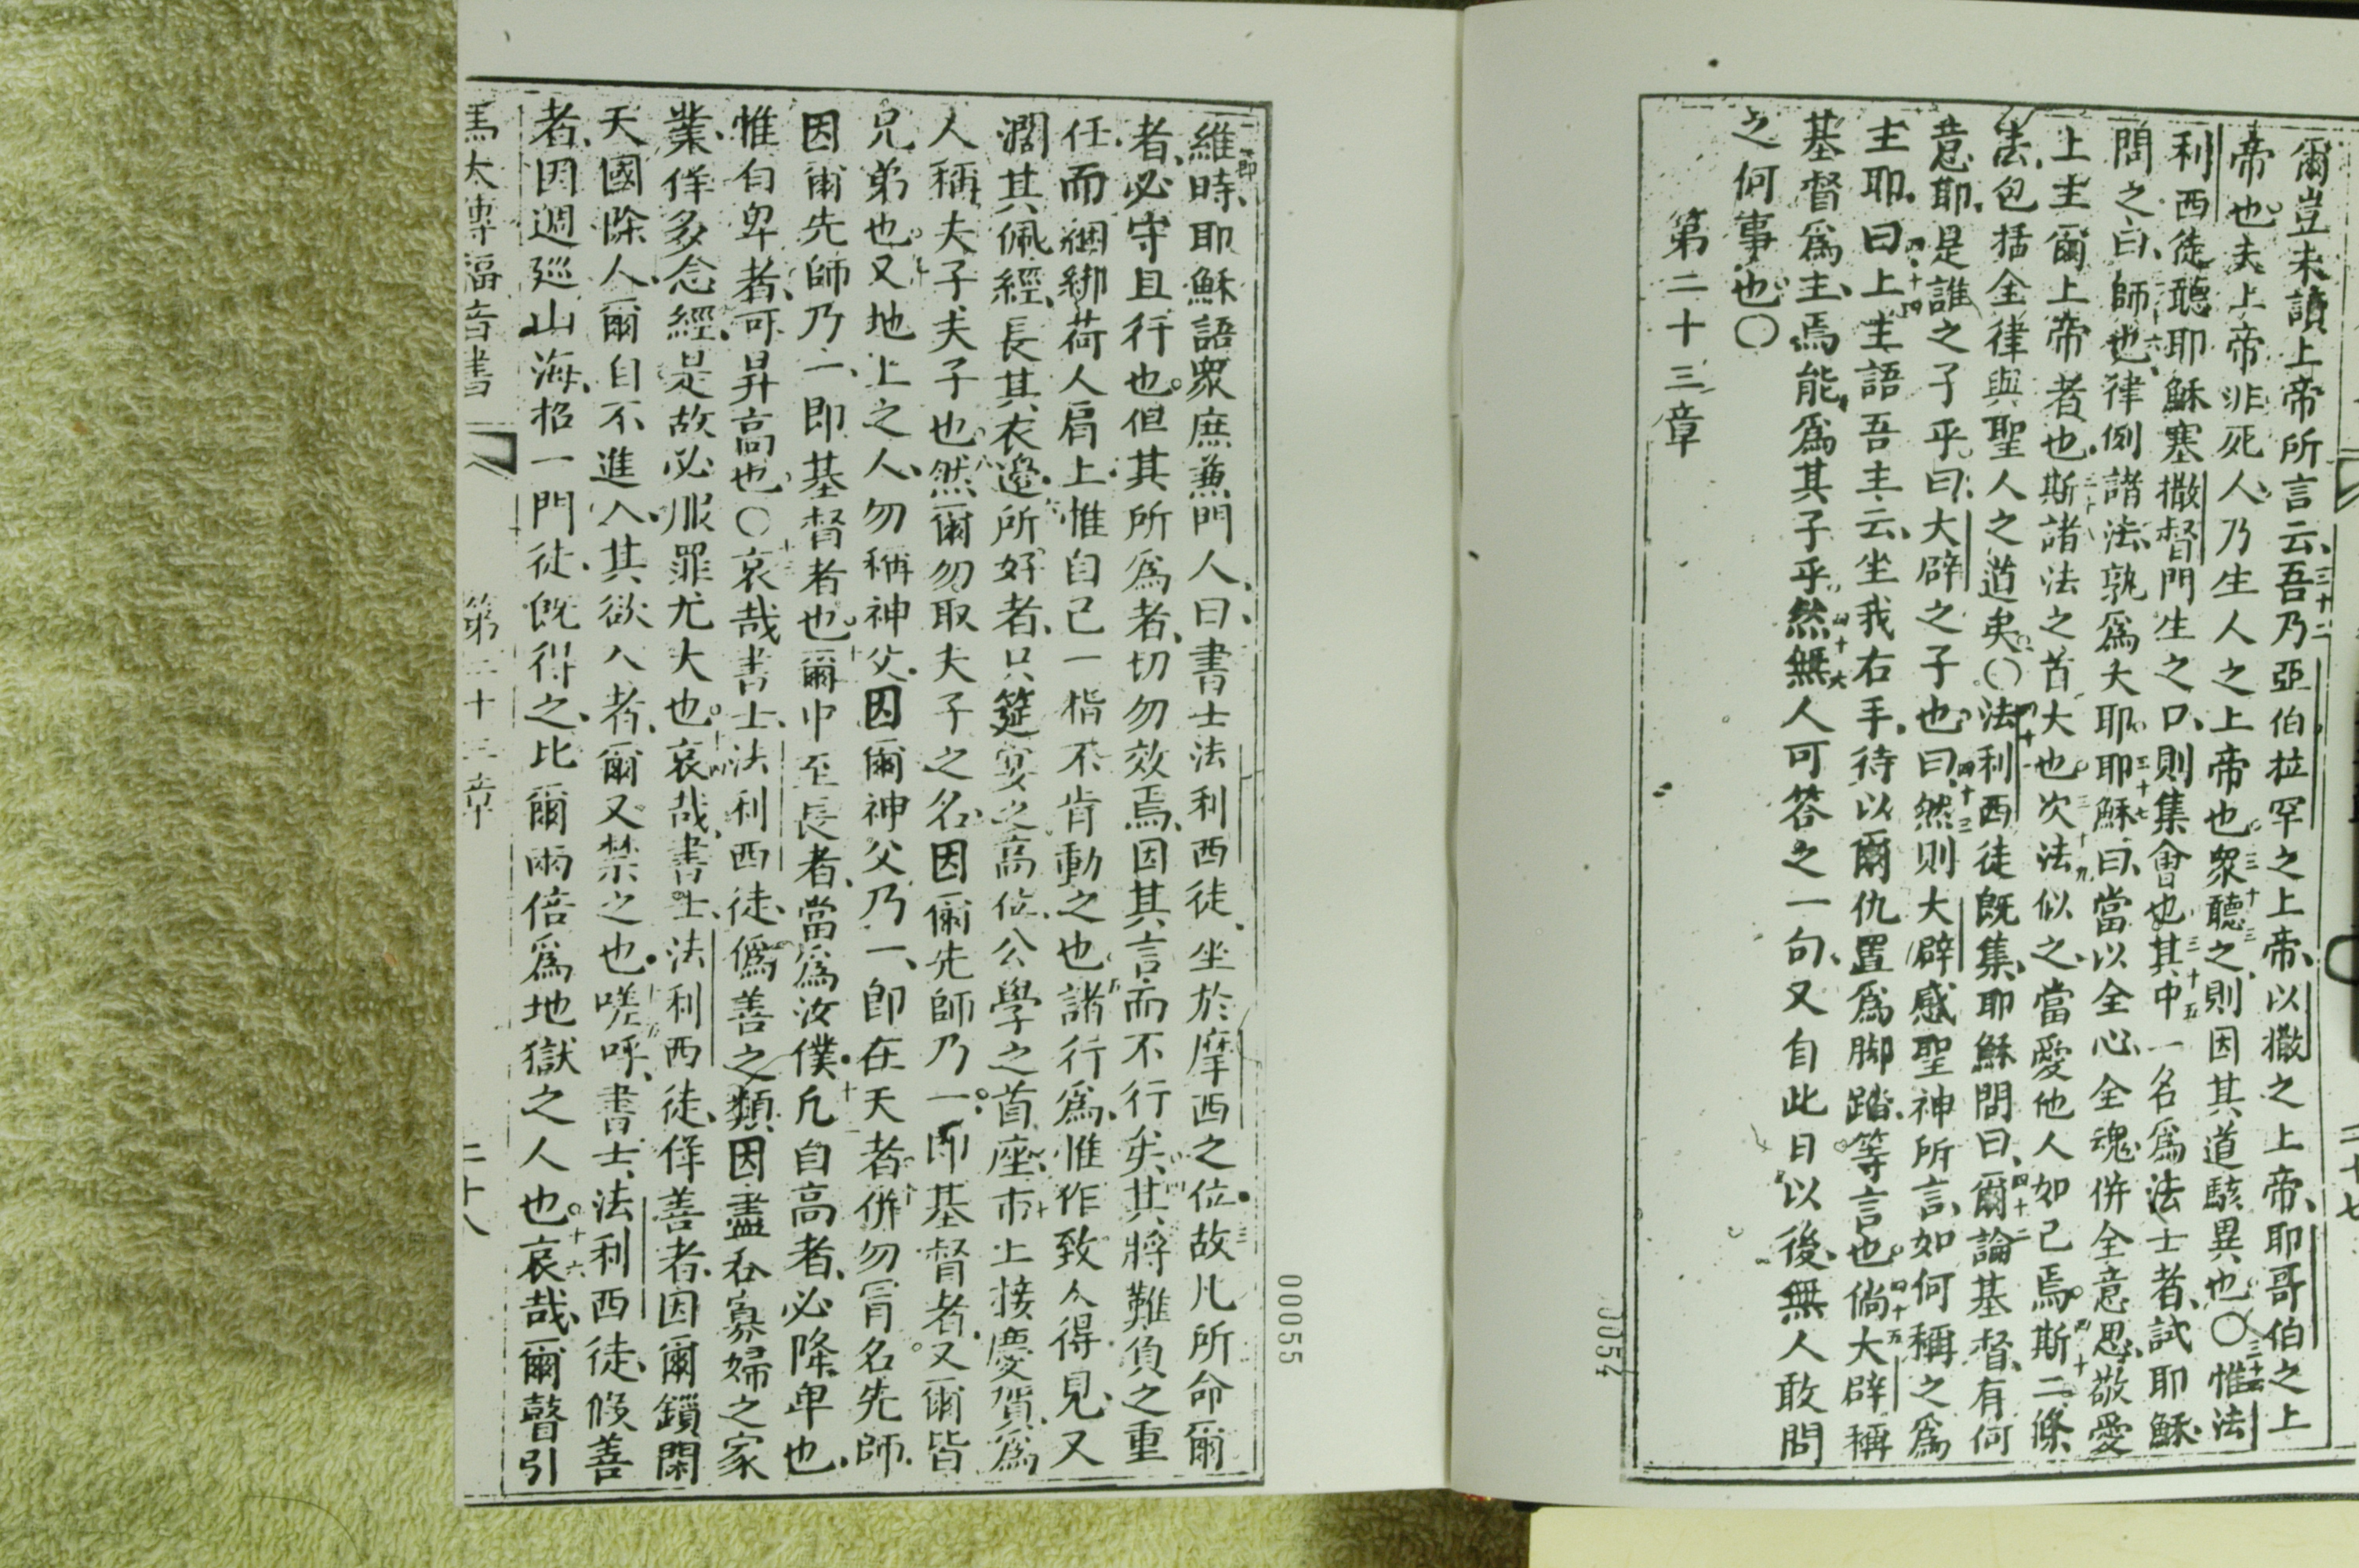 爾豈未讀上帝所言云、吾乃亞伯拉罕之上帝、以撒之上帝、耶哥伯之上
帝也。夫上帝非死人、乃生人之上帝也。衆聽之、則因其道駭異也。〇惟法
利西徒聽耶穌塞撒督門生之口、則集會也。其中一名爲法士者、試耶穌、
問之曰、師也、律例諸法、孰爲大耶。耶穌曰、當以全心、全魂、併全意思、敬愛
上主爾上帝者也。斯諸法之首大也。次法似之、當愛他人如己焉。斯二條
法、包括全律與聖人之道矣。〇法利西徒既集、耶穌問曰、爾論基督、有何
意耶、是誰之子乎。曰、大辟之子也。曰、然則大辟感聖神所言、如何稱之爲
主耶。曰、上主語吾主云、坐我右手、待以爾仇置爲脚踏、等言也。倘大辟稱
基督爲主、焉能爲其子乎。然無人可答之一句、又自此日以後、無人敢問
之何事也。〇
第二十三章
00054
00055
維時、耶穌語衆庶兼門人、曰、書士法利西徒、坐於摩西之位。故凡所命爾
者、必守且行也。但其所爲者、切勿效焉、因其言而不行矣、其將難負之重
任、而綑綁荷人肩上、惟自己一指不肯動之也。諸行爲、惟作致人得見、又
濶其佩經、長其衣邊、所好者、只筵宴之高位、公學之首座、市上接慶賀、爲
人稱夫子夫子也。然爾勿取夫子之名、因爾先師乃一、即基督者、又爾皆
兄弟也。又地上之人、勿稱神父、因爾神父乃一、即在天者。併勿冐名先師、
因爾先師乃一、即基督者也。爾中至長者、當爲汝僕。凡自高者、必降卑也、
惟自卑者、可昇高也。〇哀哉書士、法利西徒、僞善之類、因盡吞寡婦之家
業、佯多念經、是故必服罪尤大也。哀哉、書士、法利西徒、佯善者、因爾鎖閑
天國除人、爾自不進入、其欲入者、爾又禁之也。嗟呼、書士、法利西徒、假善
者、因週廵山海、招一門徒、既得之、比爾兩倍爲地獄之人也。哀哉、爾瞽引
馬太傳福音書 第二十三章 二十八